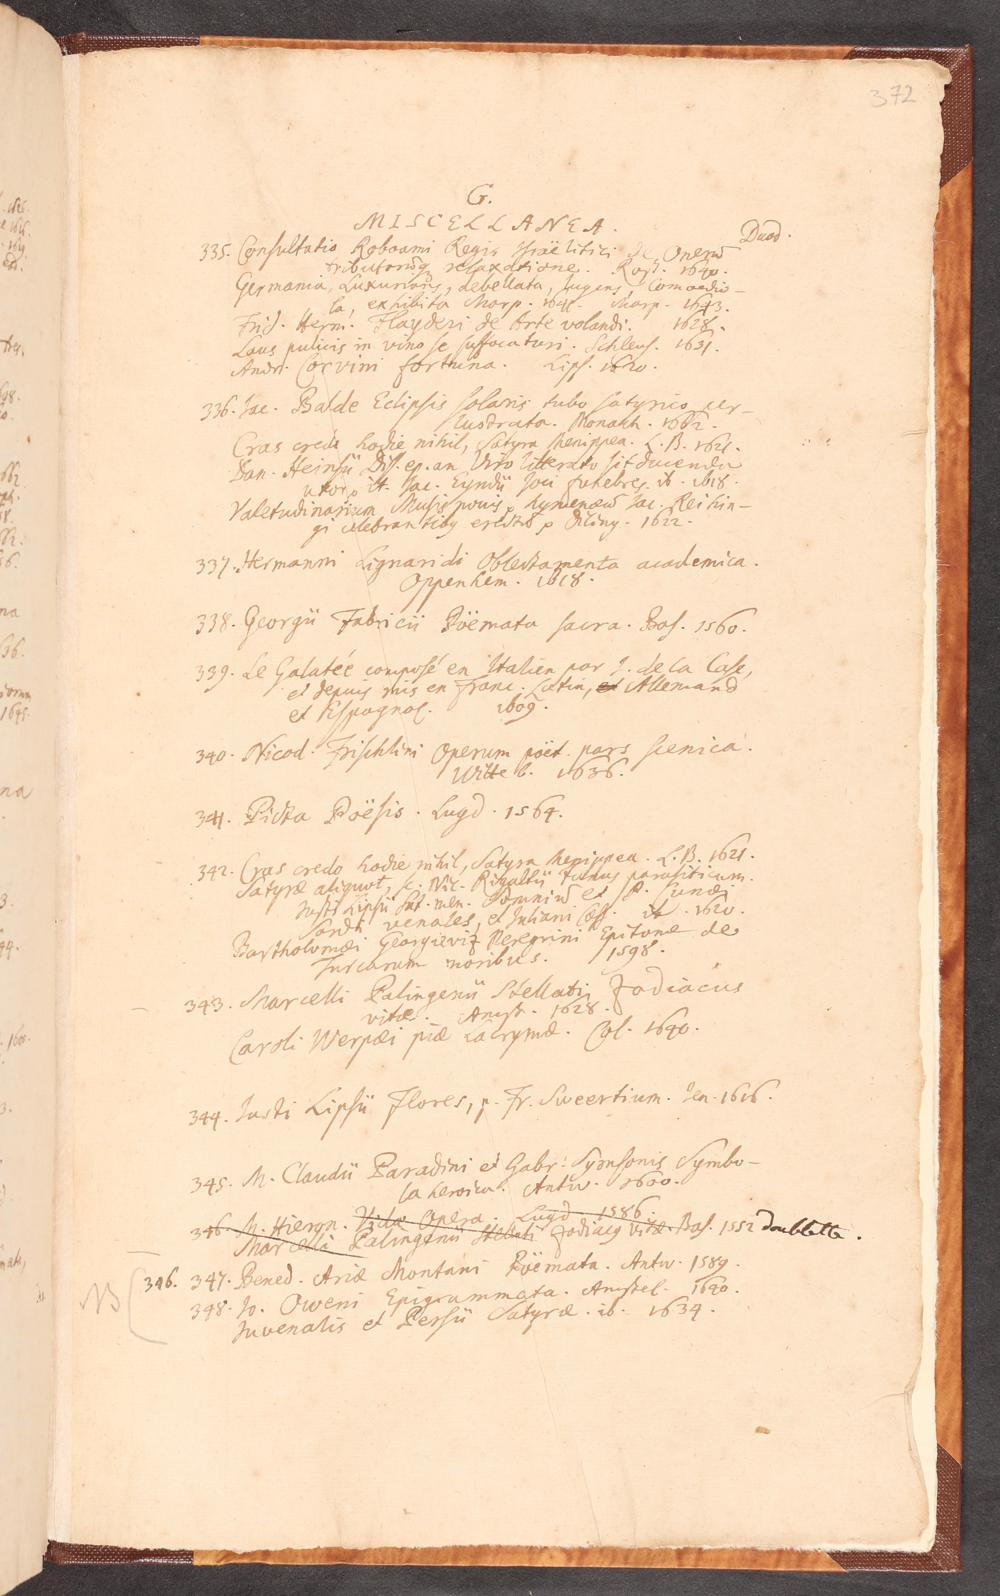 372
G.
MISCELLANEA.
Duod.
335. Consultatio Roboami Regis Israëlitici de Operũ
tributorũq relaxatione. Ros. 1640.
Germania, Luxurians, debellata, lugens, Comoedio-
la, exhibita Marp. 1641. Marp. 1643.
Frid. Herm. Flayderi de Arte volandi. 1628.
Laus pulicis in vino se suffocaturi. Schleus. 1631.
Andr. Corvini fortuna. Lips. 1620.
336. Jac. Balde Eclipsis solaris tubo satyrico per-
lustrata. Monach. 1662.
Cras credo hodie nihil, Satyra Menippea. L.B. 1621.
Dan. Heinsii Diss. ep. an Viro litterato sit ducenda
uxor, it. Jac. Eyndii Joci funebres. ib. 1618.
Valetudinarium Musis novis hymenæũ Jac. Reihin-
gi celebrantibꝫ erectũ Diling. 1622.
337. Hermanni Lignaridi Oblectamenta academica.
Oppenhem. 1618.
338. Georgii Fabricii Poëmata sacra. Bas. 1560.
339. Le Galatée composé en Italien par J. de la Case,
et depuis mis en Franc. Latin, et Allemand
et Espagnol. 1609.
340. Nicod. Frischlini Operum poët. pars scenica.
Witteb. 1636.
341. Picta Poësis. Lugd. 1564.
342. Cras credo hodie nihil, Satyra Menippea. L.B. 1621.
Satyræ aliquot, sc. Nic. Rigaltii Funus parasiticum.
Justi Lipsii Sat. Men. Somniũ et P. Cunæi
Sardi venales, et Juliani Cæss. ib. 1620.
Bartholomæi Georgieviz Peregrini Epitome de
Turcarum moribus. 1598.
343. Marcelli Palingenii Stellati Zodiacus
vitæ. Amst. 1628.
Caroli Werpæi piæ Lacrymæ. Col. 1640.
344. Justi Lipsii Flores, p. Fr. Sweertium. Jen. 1616.
345. M. Claudii Paradini et Gabr. Symeonis Symbo-
la heroica. Antw. 1600.
346. M. Hieron. Vidæ Opera. Lugd. 1586.
Marcelli Palingenii Stellati Zodiacꝰ vitæ. Bas. 1552 doublette.
NB 346. 347. Bened. Ariæ Montani Poëmata. Antw. 1589.
348. Jo. Oweni Epigrammata. Amstel. 1640.
Juvenalis et Persii Satyræ. ib. 1634.